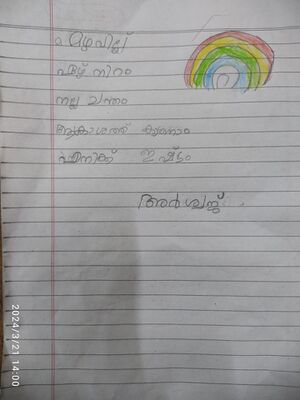 മഴവില്ല്
ഏഴ് നിറം
നല്ല ചന്തം
ആകാശത്ത് കാണാം
എനിക്ക് ഇഷ്ടം
അർശ്വജ്
2024/3/21 14:00